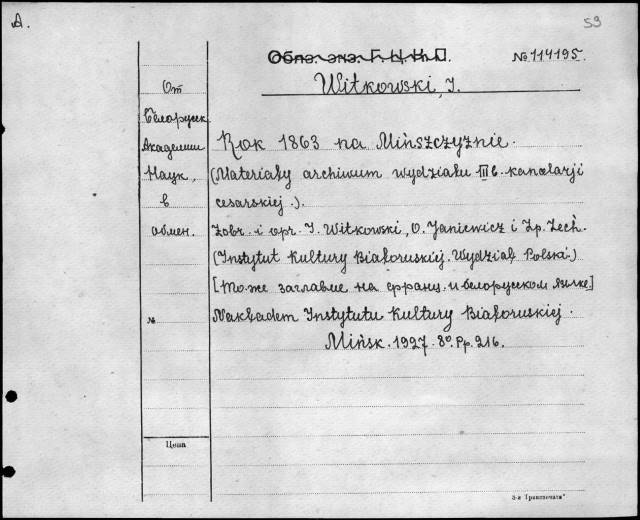 A.
53
Обяз. экз. Г. Ц. К. П.
№ 114195.
Witkowski, I.
От
Белорусск.
Академии
Наук,
в
обмен.
Rok 1863 na Mińszczyźnie.
(Materiały archiwum wydziału III b. kancelarji
cesarskiej.).
Zebr. i opr. I. Witkowski, O. Janiewicz i Zp. Zech.
(Instytut Kultury Białoruskiej. Wydział Polski.)
[То-же заглавие на франц. и белорусском языке]
Nakładem Instytutu Kultury Białoruskiej.
Mińsk. 1927. 8º. Pp. 216.
№
Цена
3-я Транспечати"